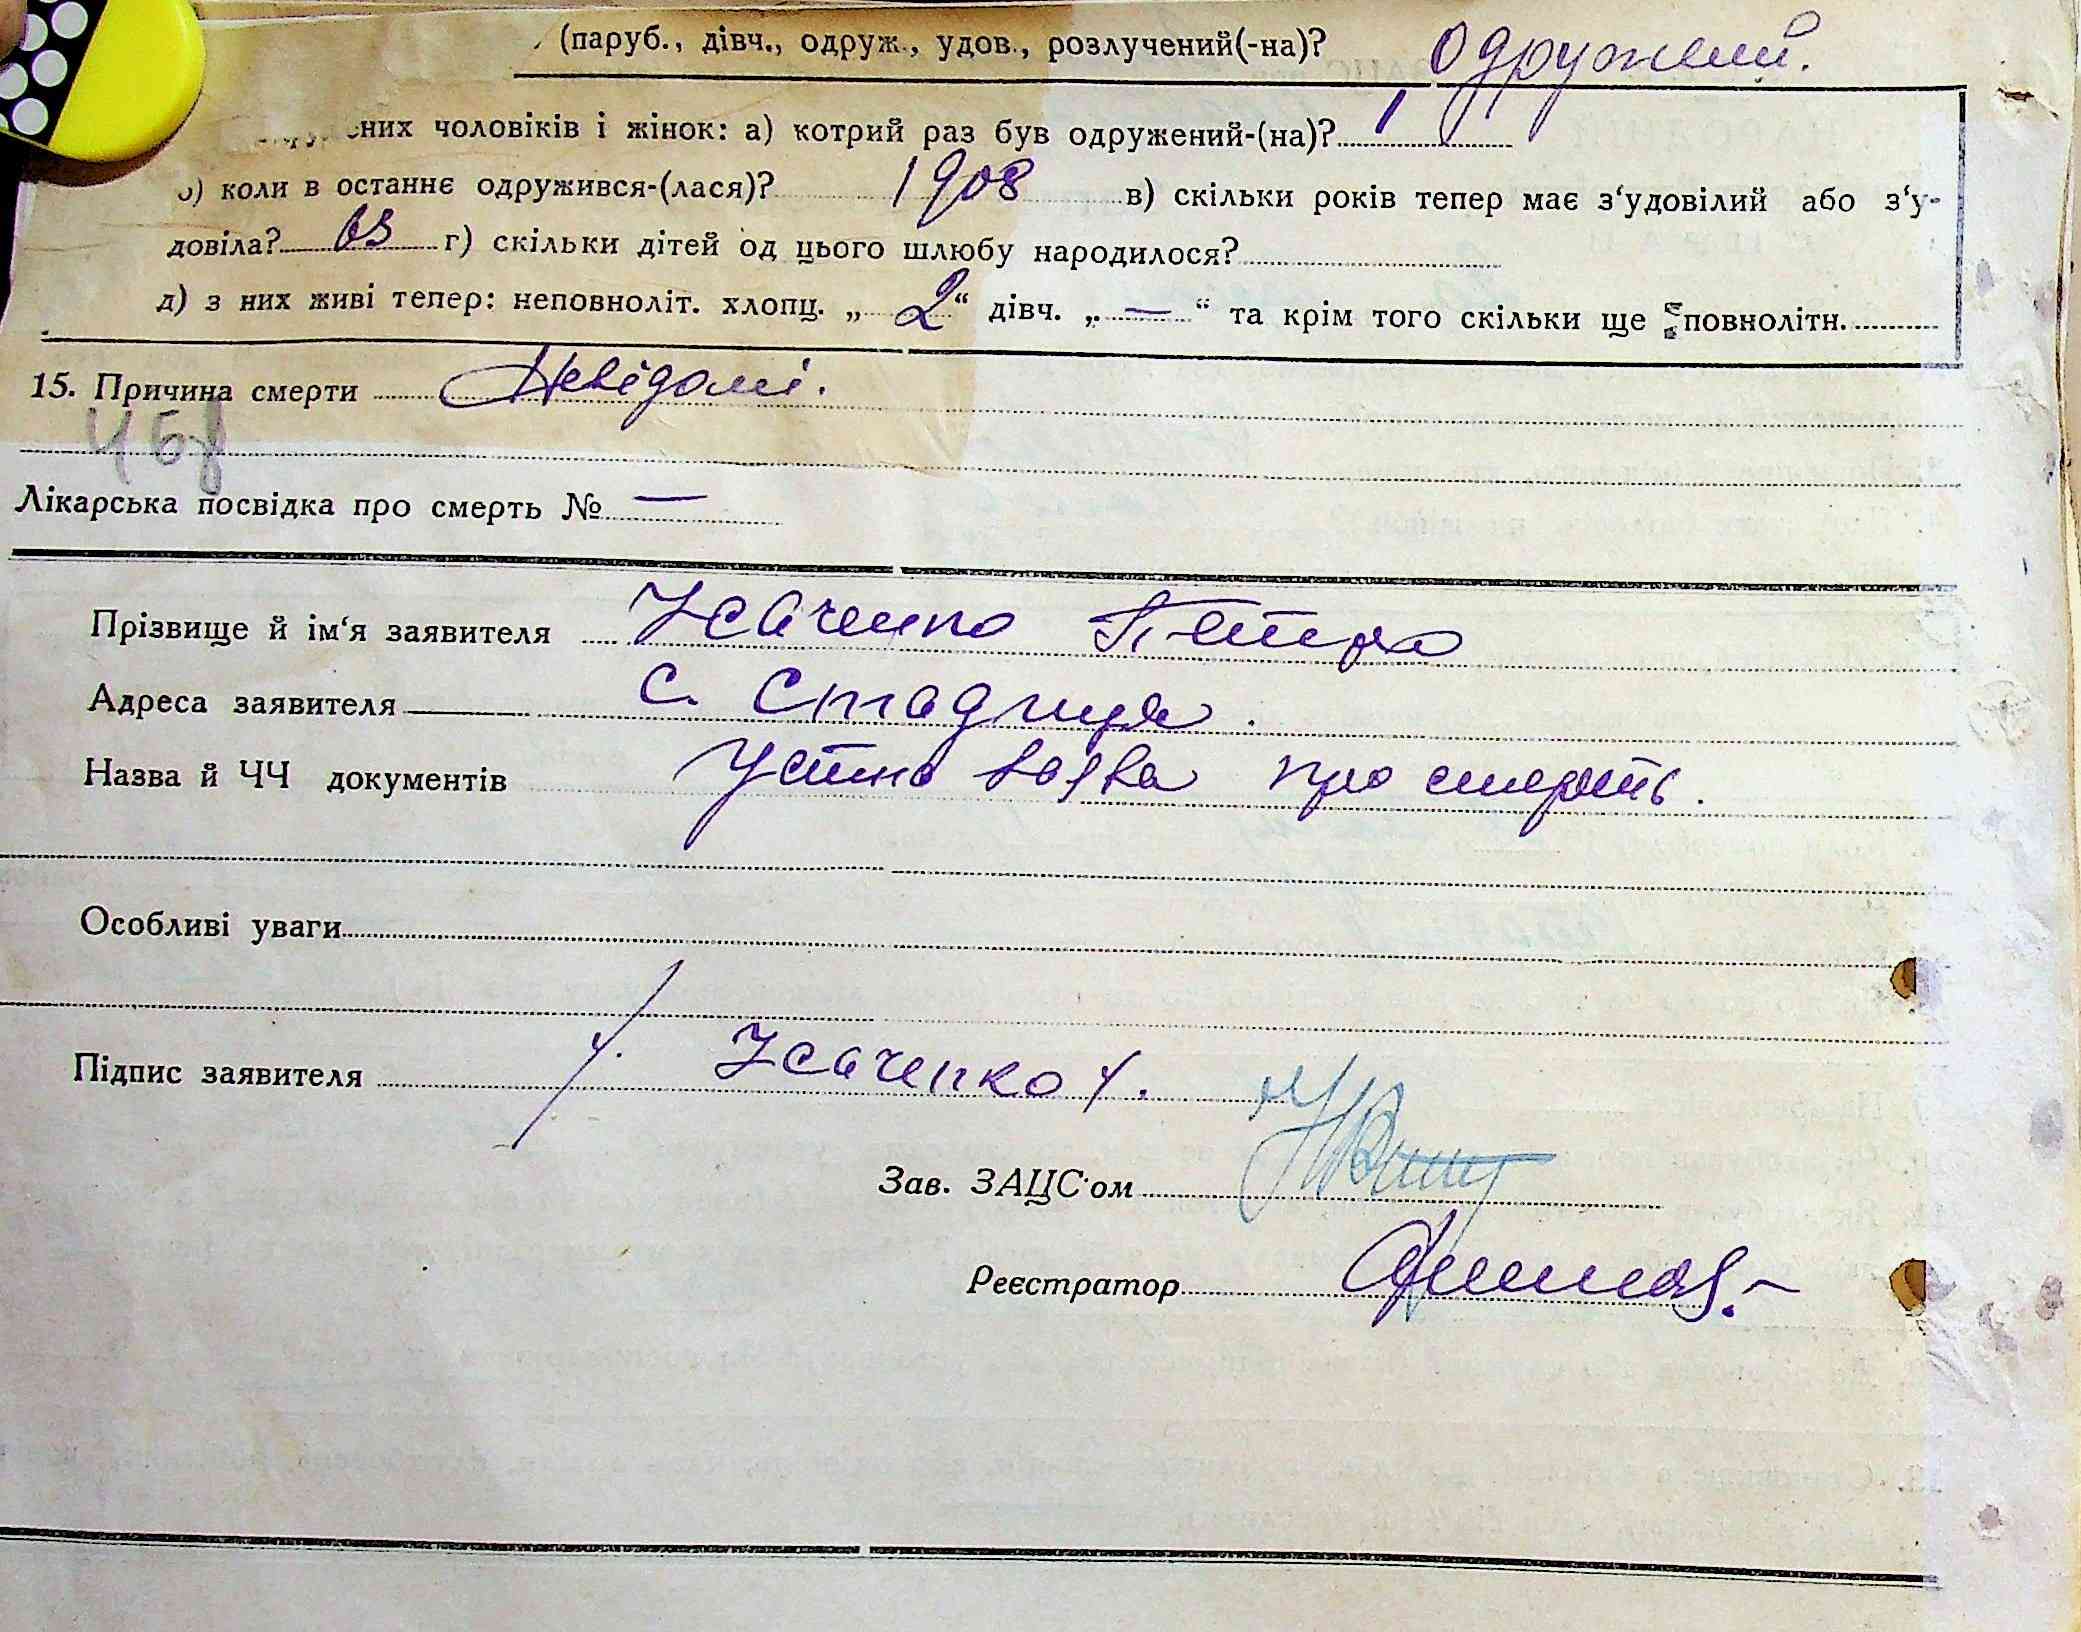 (паруб., дівч., одруж., удов., розлучений(-на)? одружений.
них чоловіків і жінок: а) котрий раз був одружений-(на)? 1
б) коли в останнє одружився-(лася)? 1908 в) скільки років тепер має з‘удовілий або з‘у-
довіла? 63 г) скільки дітей од цього шлюбу народилося?
д) з них живі тепер: неповноліт. хлопц. „2“ дівч. „—“ та крім того скільки ще повнолітн.
15. Причина смерти Невідомі.
Лікарська посвідка про смерть № —
Прізвище й ім‘я заявителя Усаченко Петро
Адреса заявителя с. Стадниця.
Назва й ЧЧ документів Устно заява про смерть.
Особливі уваги
Підпис заявителя Усаченко
Зав. ЗАЦС‘ом
Реєстратор